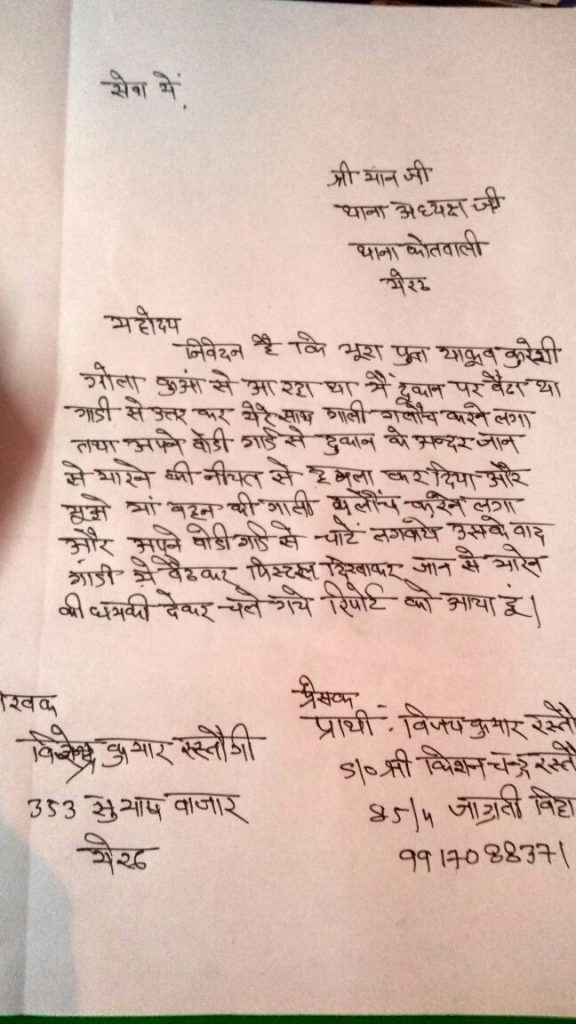 सेवा में,
श्री मान जी
थाना अध्यक्ष जी
थाना कोतवाली
मेरठ
महोदय
निवेदन है कि भूरा पुत्र याकूब कुरेशी
गोला कुआं से आ रहा था मैं दूकान पर बैठा था
गाडी से उतर कर मेरे साथ गाली गलौंच करने लगा
तथा अपने बोडी गार्ड से दुकान के अन्दर जान
से मारने की नीयत से हमला कर दिया और
मुझे मां बहन की गाली गलौंच करने लगा
और अपने बोडी गार्ड से चाटें लगवाये उसके बाद
गाडी मे बैठकर पिस्टल दिखाकर जान से मारने
की धमकी देकर चले गये रिपोर्ट को आया हूं।
प्रेसक
प्रार्थी :- विजय कुमार रस्तौ
S/o श्री किशन चन्द्र रस्तौ
85/4 जाग्रती विहा
9917088371
कुमार रस्तौगी
353 सुभाष बाजार
मेरठ